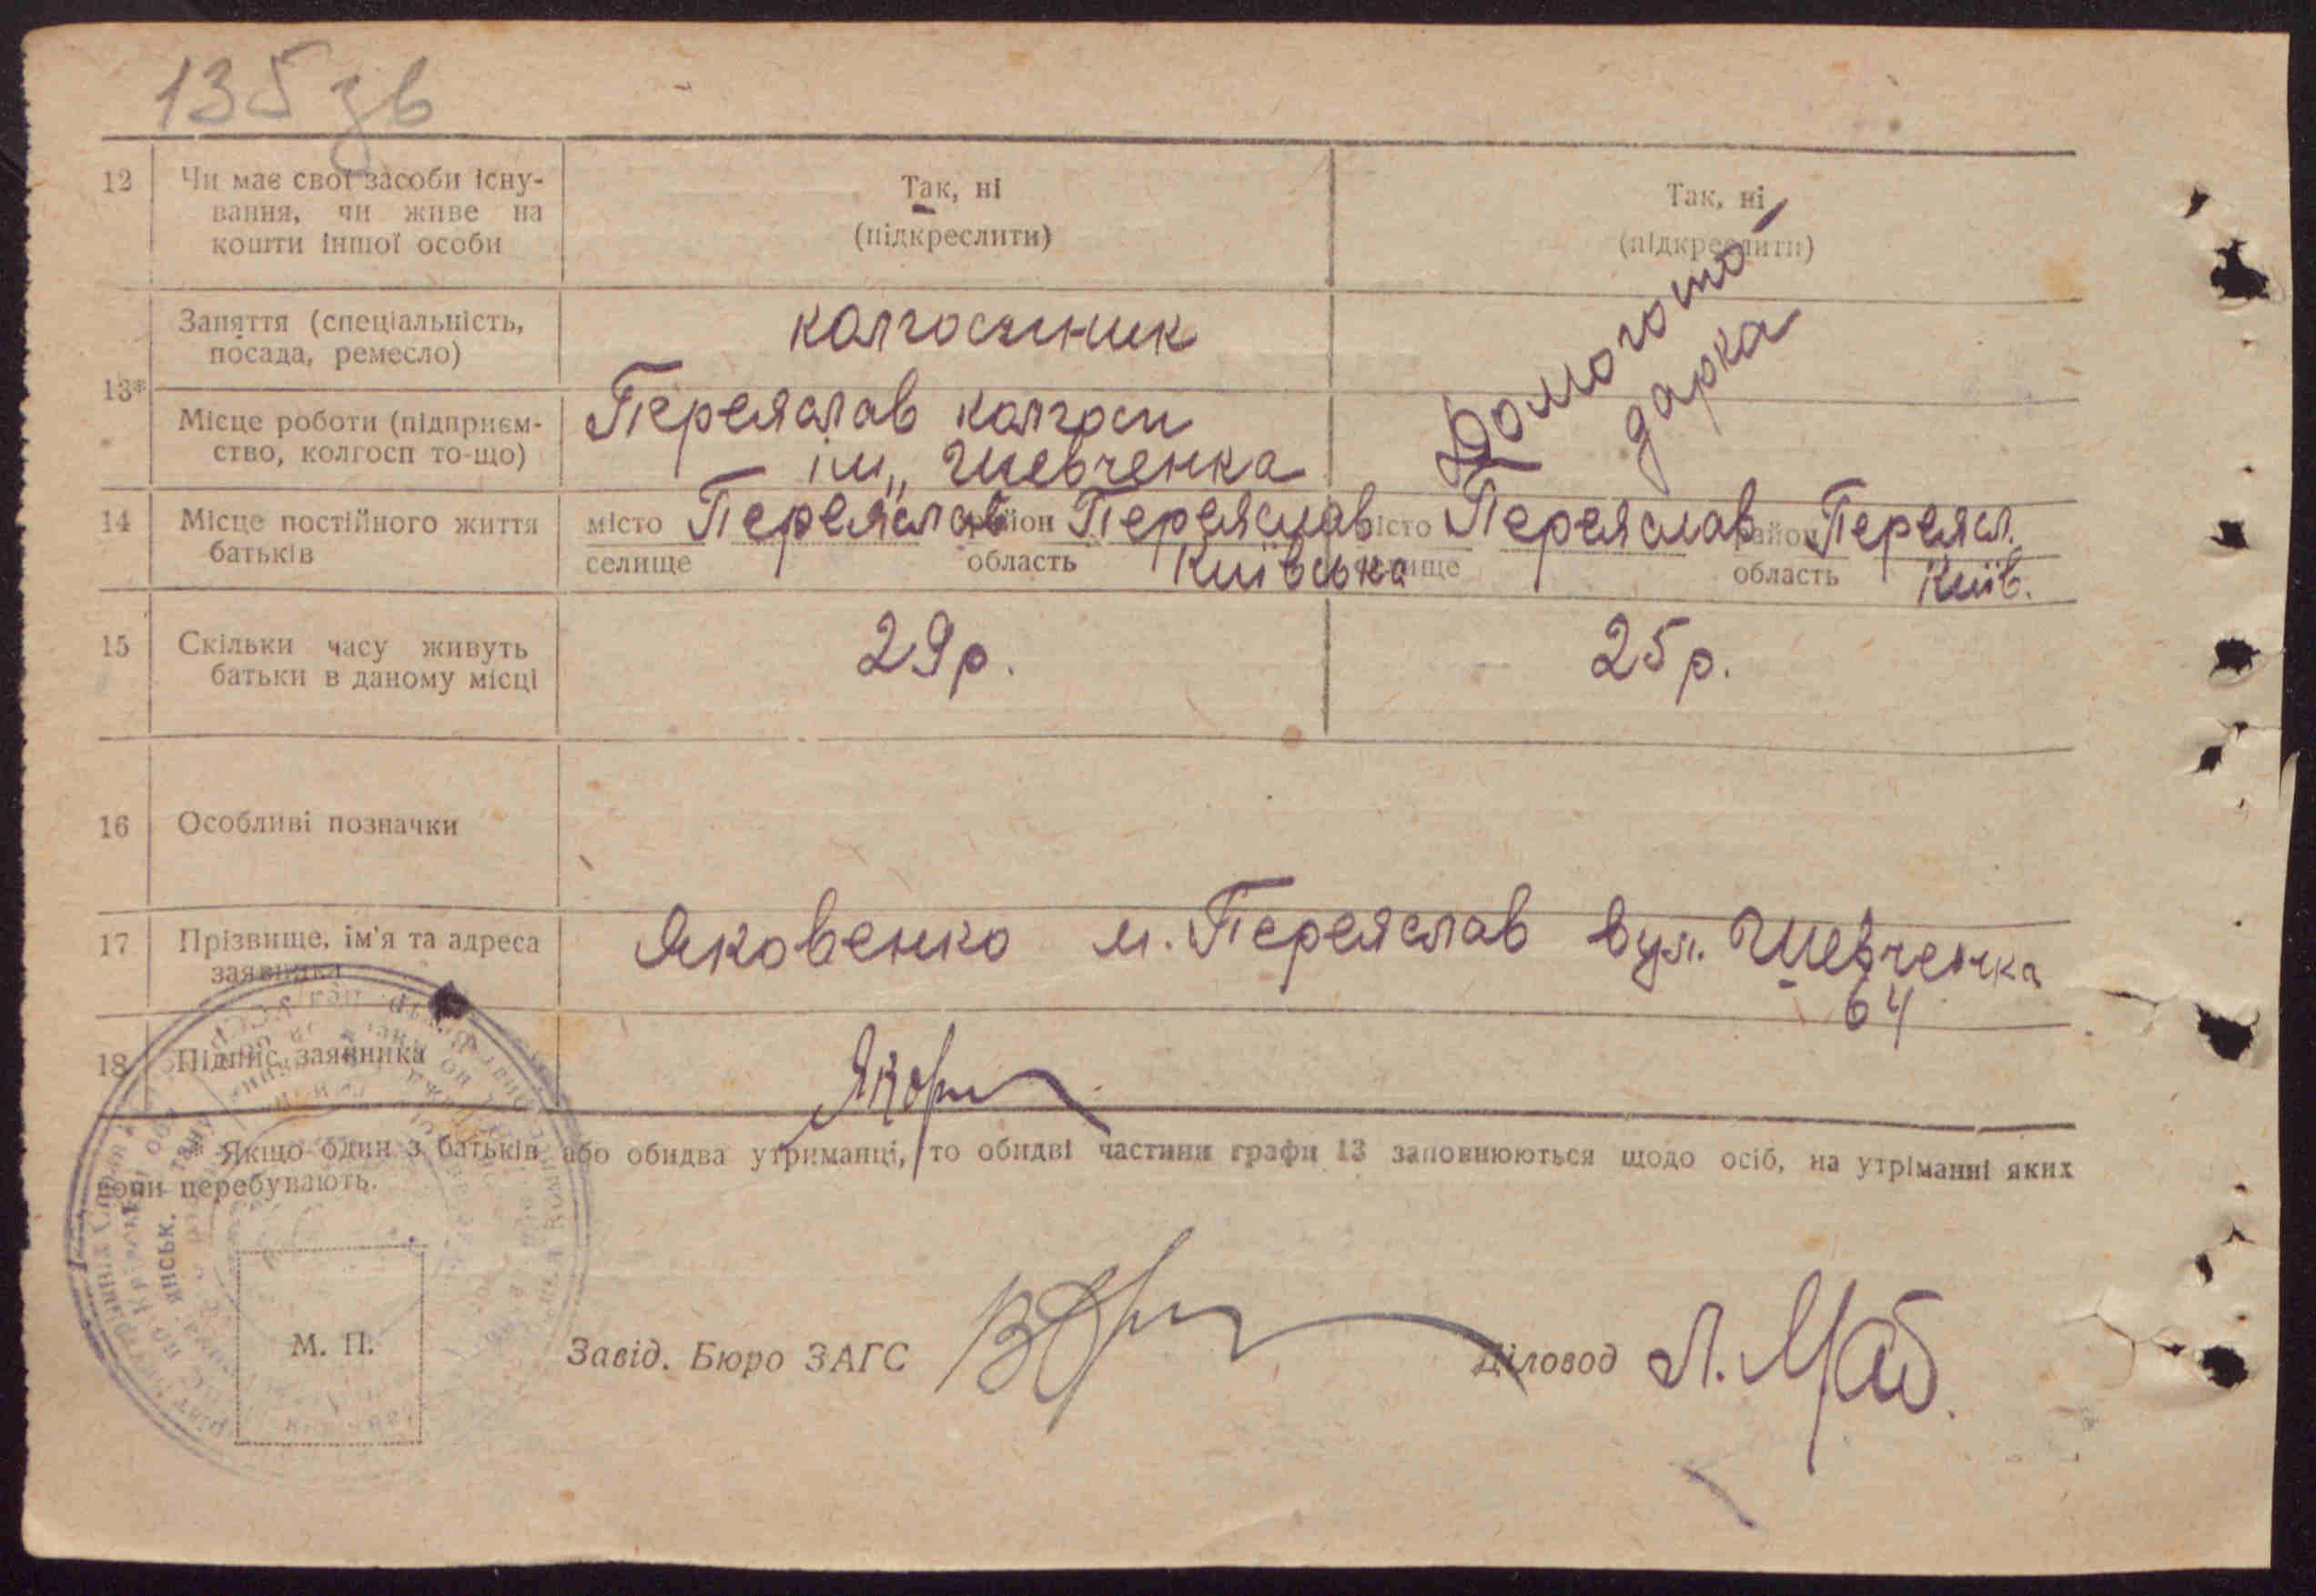 135 зв
12 Чи має свої засоби існу-
вання, чи живе на
кошти іншої особи
Так, ні
(підкреслити)
Так, ні
(підкреслити)
13*
Заняття (спеціальність,
посада, ремесло)
колгоспник
Домогоспо
дарка
Місце роботи (підприєм-
ство, колгосп то-що)
Переяслав колгосп
ім„ Шевченка
14 Місце постійного життя
батьків
місто Переяслав район Переяслав
селище область Київська
місто Переяслав район Переясл.
селище область Київ.
15 Скільки часу живуть
батьки в даному місці
29 р.
25 р.
16 Особливі позначки
17 Прізвище, ім'я та адреса
заявника
Яковенко м. Переяслав вул. Шевченка
64
18 Підпис заявника
* Якщо один з батьків або обидва утриманці, то обидві частини графи 13 заповнюються щодо осіб, на утріманні яких
вони перебувають.
М. П.
Завід. Бюро ЗАГС
Діловод